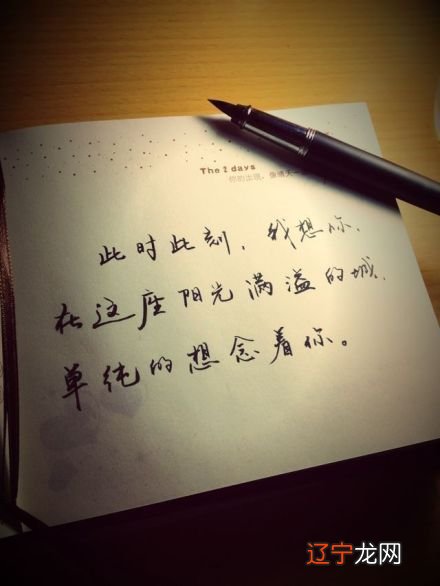 The 2 days
你的出现，像晴天
此时此刻，我想你，
在这座阳光满溢的城，
单纯的想念着你。
辽宁龙网